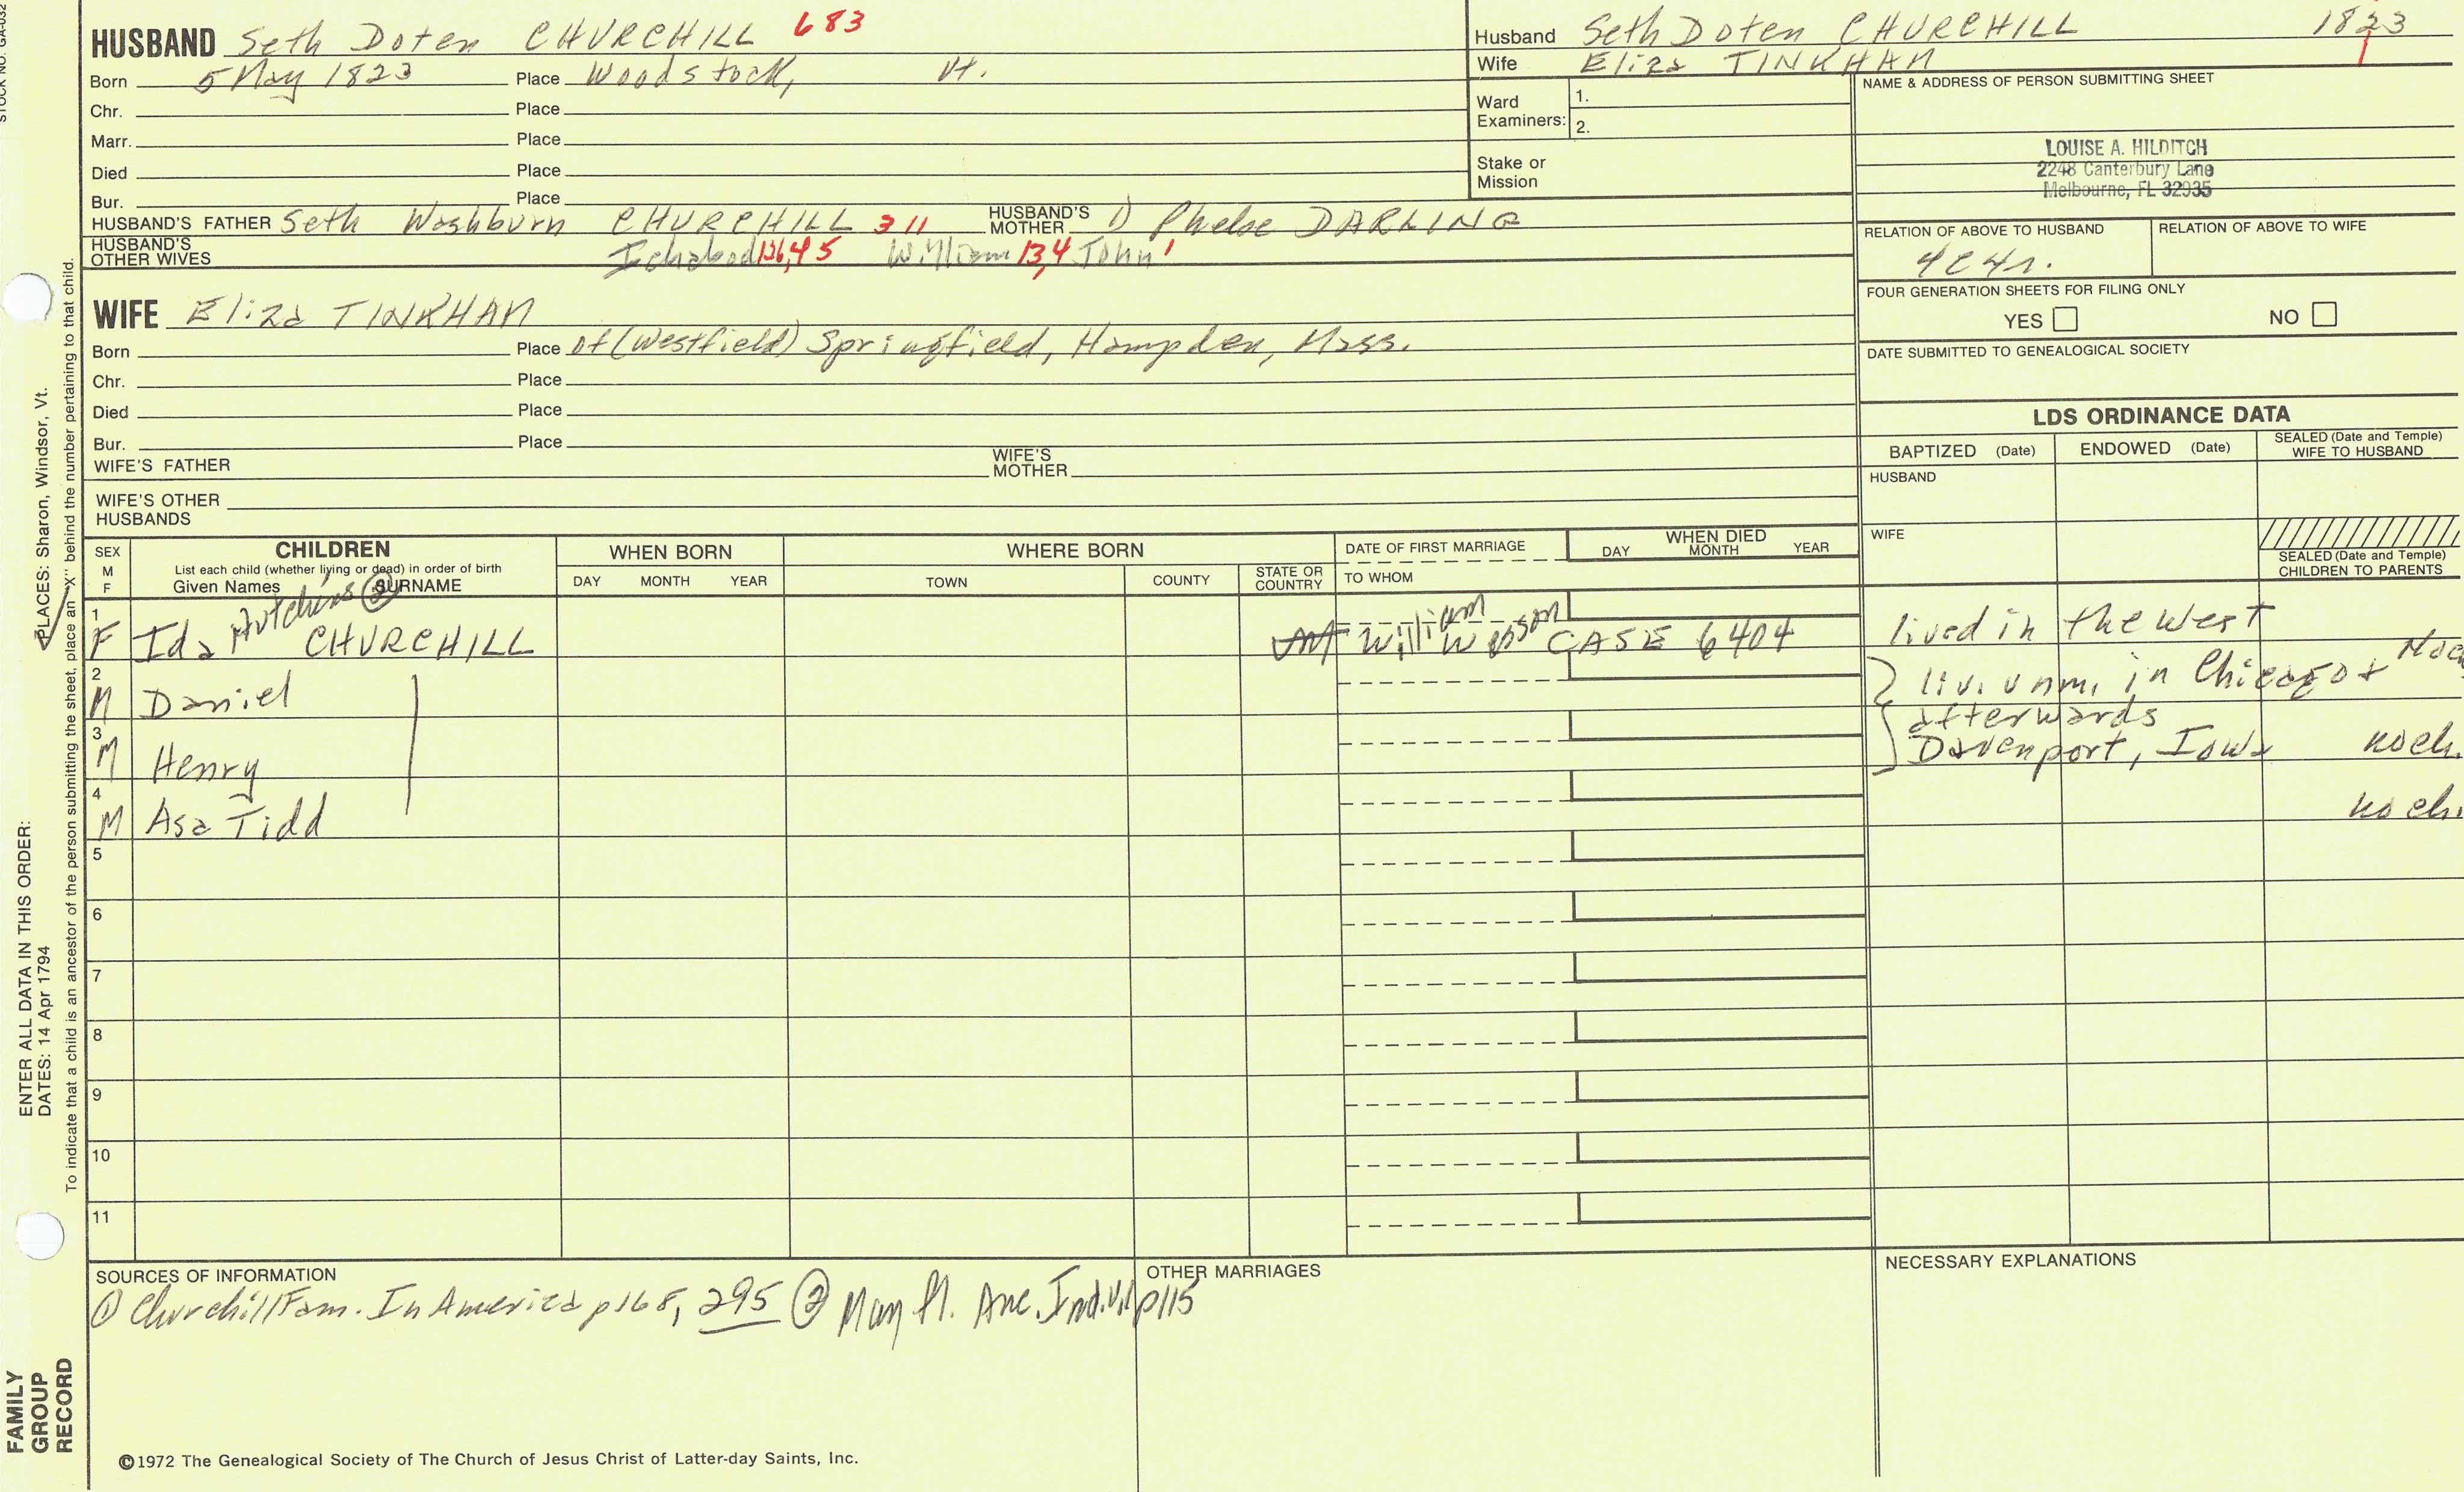 STOCK NO. GA-032
HUSBAND Seth Doten CHURCHILL 683
Born 5 May 1823 Place Woodstock, Vt.
Chr. Place
Marr. Place
Died Place
Bur. Place
HUSBAND'S FATHER Seth Washburn CHURCHILL 311 HUSBAND'S MOTHER 1) Phebe DARLING
HUSBAND'S OTHER WIVES Ichabod 136,45 William 13,4 John 1
WIFE Eliza TINKHAN
Born Place of (Westfield) Springfield, Hampden, Mass.
Chr. Place
Died Place
Bur. Place
WIFE'S FATHER WIFE'S MOTHER
WIFE'S OTHER HUSBANDS
Husband Seth Doten CHURCHILL 1823
Wife Eliza TINKHAN
Ward Examiners: 1.
2.
Stake or Mission
NAME & ADDRESS OF PERSON SUBMITTING SHEET
LOUISE A. HILDITCH
2248 Canterbury Lane
Melbourne, FL 32935
RELATION OF ABOVE TO HUSBAND RELATION OF ABOVE TO WIFE
4c4r.
FOUR GENERATION SHEETS FOR FILING ONLY
YES NO
DATE SUBMITTED TO GENEALOGICAL SOCIETY
LDS ORDINANCE DATA
BAPTIZED (Date) ENDOWED (Date) SEALED (Date and Temple) WIFE TO HUSBAND
HUSBAND
WIFE
SEALED (Date and Temple) CHILDREN TO PARENTS
SEX M F
CHILDREN
List each child (whether living or dead) in order of birth
Given Names SURNAME
WHEN BORN
DAY MONTH YEAR
WHERE BORN
TOWN COUNTY STATE OR COUNTRY
DATE OF FIRST MARRIAGE
TO WHOM
WHEN DIED
DAY MONTH YEAR
1 F Ida Hutchins ② CHURCHILL William CASE 6404 lived in the West
2 M Daniel liv. unm. in Chicago +
afterwards
3 M Henry Davenport, Iowa no ch.
4 M Asa Tidd no ch.
5
6
7
8
9
10
11
SOURCES OF INFORMATION
① Churchill Fam. In America p168, 295 ② May fl. Anc. Ind. V.1 p115
OTHER MARRIAGES
NECESSARY EXPLANATIONS
©1972 The Genealogical Society of The Church of Jesus Christ of Latter-day Saints, Inc.
FAMILY
GROUP
RECORD
ENTER ALL DATA IN THIS ORDER:
DATES: 14 Apr 1794
PLACES: Sharon, Windsor, Vt.
To indicate that a child is an ancestor of the person submitting the sheet, place an "X" behind the number pertaining to that child.